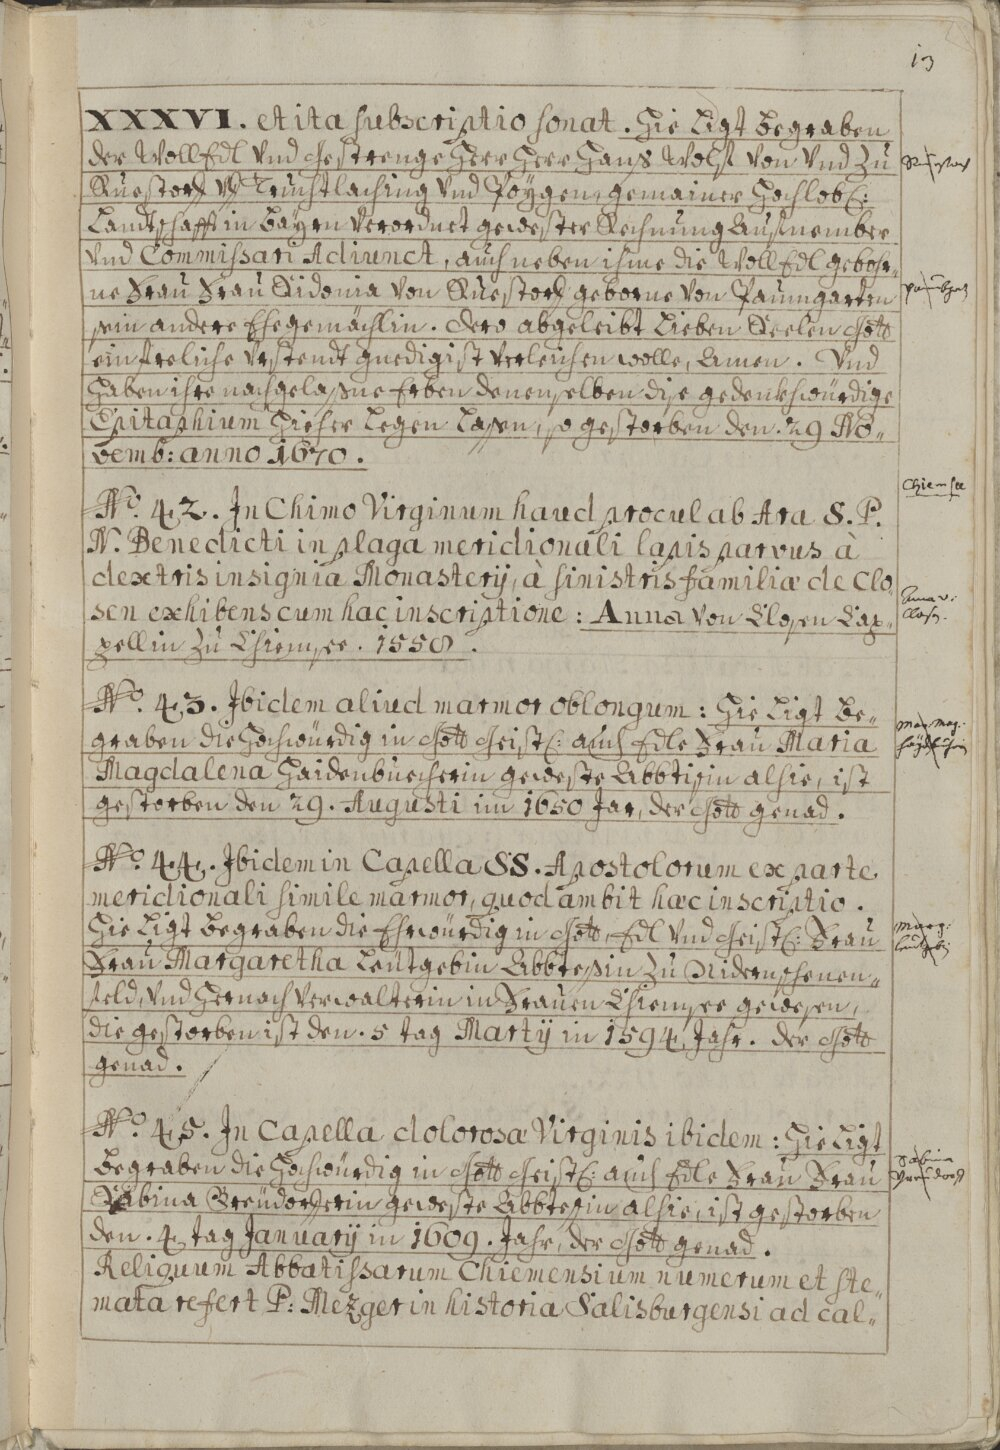 13
XXXVI. et ita subscriptio sonat. Hie Ligt begraben
der WollEdl vnd Gestrenge Herr Herr Hans Wolf von vnd zu
Ruestorf vf Truchtlaching vnd Poÿgen, gemainer Hochlobl:
Landtschafft in Bayrn Verordnet gewester Rechnung Aufnember
vnd Commissari Adiunct, auch neben ihme die WollEdl gebohr„
ne Frau Frau Sidonia von Ruestorf geborne von Paumgarten
sein andere Ehegemächlin. dero abgeleibt Lieben Seelen Gott
ein freliche Vrstendt gnedigist verleichen wolle, Amen. Vnd
haben ihre nachgelaßne Erben denenselben dise gedenkhwürdige
Epitaphium hieher Legen Laßen, so gestorben den. 29 No„
vemb: anno 1670.
Chiemsee
No. 42. In Chimo Virginum haud procul ab Ara S. P.
N. Benedicti in plaga meridionali lapis parvus à
dextris insignia Monasterij, à sinistris familiæ de Clo„
sen exhibens cum hac inscriptione: Anna von Closen Cap„
pellin zu Chiemsee. 1558.
Anna v:
Closen.
No. 43. Ibidem aliud marmor oblongum: Hie Ligt be„
graben die Hochwürdig in Gott Geistl: auch Edle Frau Maria
Magdalena Haidenbuecherin geweste Abbtißin alhie, ist
gestorben den 29. Augusti im 1650 Jar, der Gott genad.
Mar. Mag.
No. 44. Ibidem in Capella SS. Apostolorum ex parte
meridionali simile marmor, quod ambit hæc inscriptio.
Hie Ligt begraben die Ehrwürdig in Gott, Edl vnd Geistl: Frau
Frau Margaretha Leütgebin Abbteßin zu Nidernschenen„
feld, vnd hernach verwalterin in Frauen Chiemsee gewesen,
die gestorben ist den. 5 tag Martÿ in 1594 Jahr. der Gott
genad.
Marg.
No. 45. In Capella dolorosæ Virginis ibidem: Hie Ligt
begraben die Hochwürdig in Gott Geistl: auch Edle Frau Frau
Sabina Preüdorferin geweste Abbteßin alhie, ist gestorben
den. 4 tag Januarÿ in 1609. Jahr, der Gott genad.
Sabina
Reliquum Abbatissarum Chiemensium numerum et ste„
mata refert P: Mezger in historia Salisburgensi ad cal„